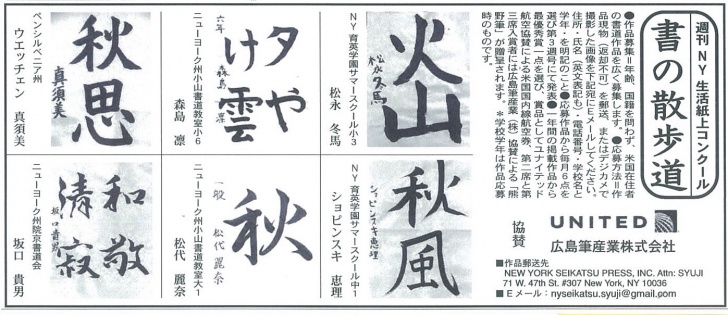 週刊NY生活紙上コンクール
書の散歩道
●作品募集=年齢、国籍を問わず、米国在住者
の書道作品を広く募集します。●応募方法=作
品現物（返却不可）を郵送、またはデジカメで
撮影した画像を下記宛にEメールしてください。
住所・氏名（英文表記も）・電話番号・学校名と
学年・を明記のこと●応募作品から毎月6点を
選び第3週号にて発表●一年間の掲載作品から
最優秀賞一点を選び、賞品としてユナイテッド
航空協賛による米国国内線航空券、第二席と第
三席入賞者には広島筆産業（株）協賛による「熊
野筆」が贈呈されます。＊学校学年は作品応募
時のものです。
協賛
UNITED
広島筆産業株式会社
■作品郵送先
NEW YORK SEIKATSU PRESS, INC. Attn: SYUJI
71 W. 47th St. #307 New York, NY 10036
■Eメール：nyseikatsu.syuji@gmail.com
火山
松永冬馬
NY育英学園サマースクール小3
松永 冬馬
夕や
け雲
六年 森島凛
ニューヨーク州小山書道教室小6
森島 凛
秋思
真須美
ペンシルベニア州
ウエッチェン 真須美
秋風
ショピンスキ恵理
NY育英学園サマースクール中1
ショピンスキ 恵理
秋
一般 松代麗奈
ニューヨーク州小山書道教室大1
松代 麗奈
和敬
清寂
ニューヨーク州院京書道会
坂口 貴男